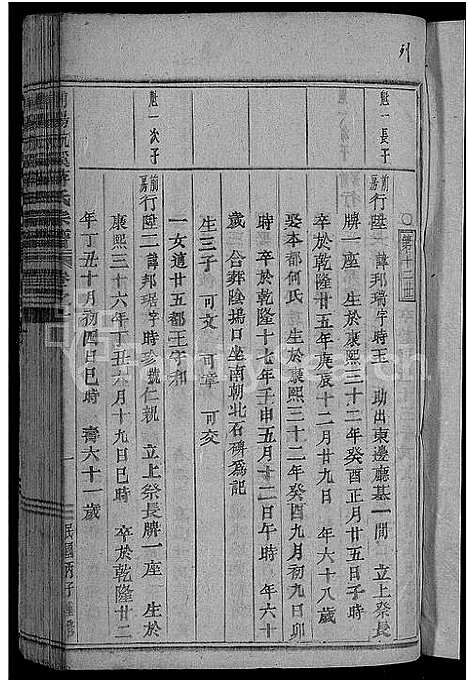 第十三世
魁一長子
前嘉行陞一 諱邦瑞字時玉 助出東邊廳基一間 立上祭長
牌一座 生於康熙三十二年癸酉正月廿五日子時
卒於乾隆廿五年庚辰十二月廿九日 年六十八歲
娶本都何氏 生於康熙三十二年癸酉九月初九日卯
時 卒於乾隆十七年壬申五月十二日午時 年六十
歲 合葬陰揚口坐南朝北石碑為記
生三子 可文 可章 可交
一女適廿五都王守和
魁一次子
前嘉行陞二 諱邦琚字時珍號仁親 立上祭長牌一座 生於
康熙三十六年丁丑六月十九日巳時 卒於乾隆廿二
年丁丑十月初四日巳時 壽六十一歲
民國丙子